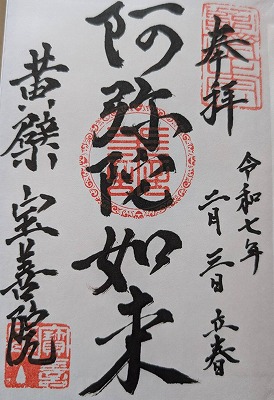 奉拝
令和七年
二月三日立春
阿弥陀如来
黄檗宝善院